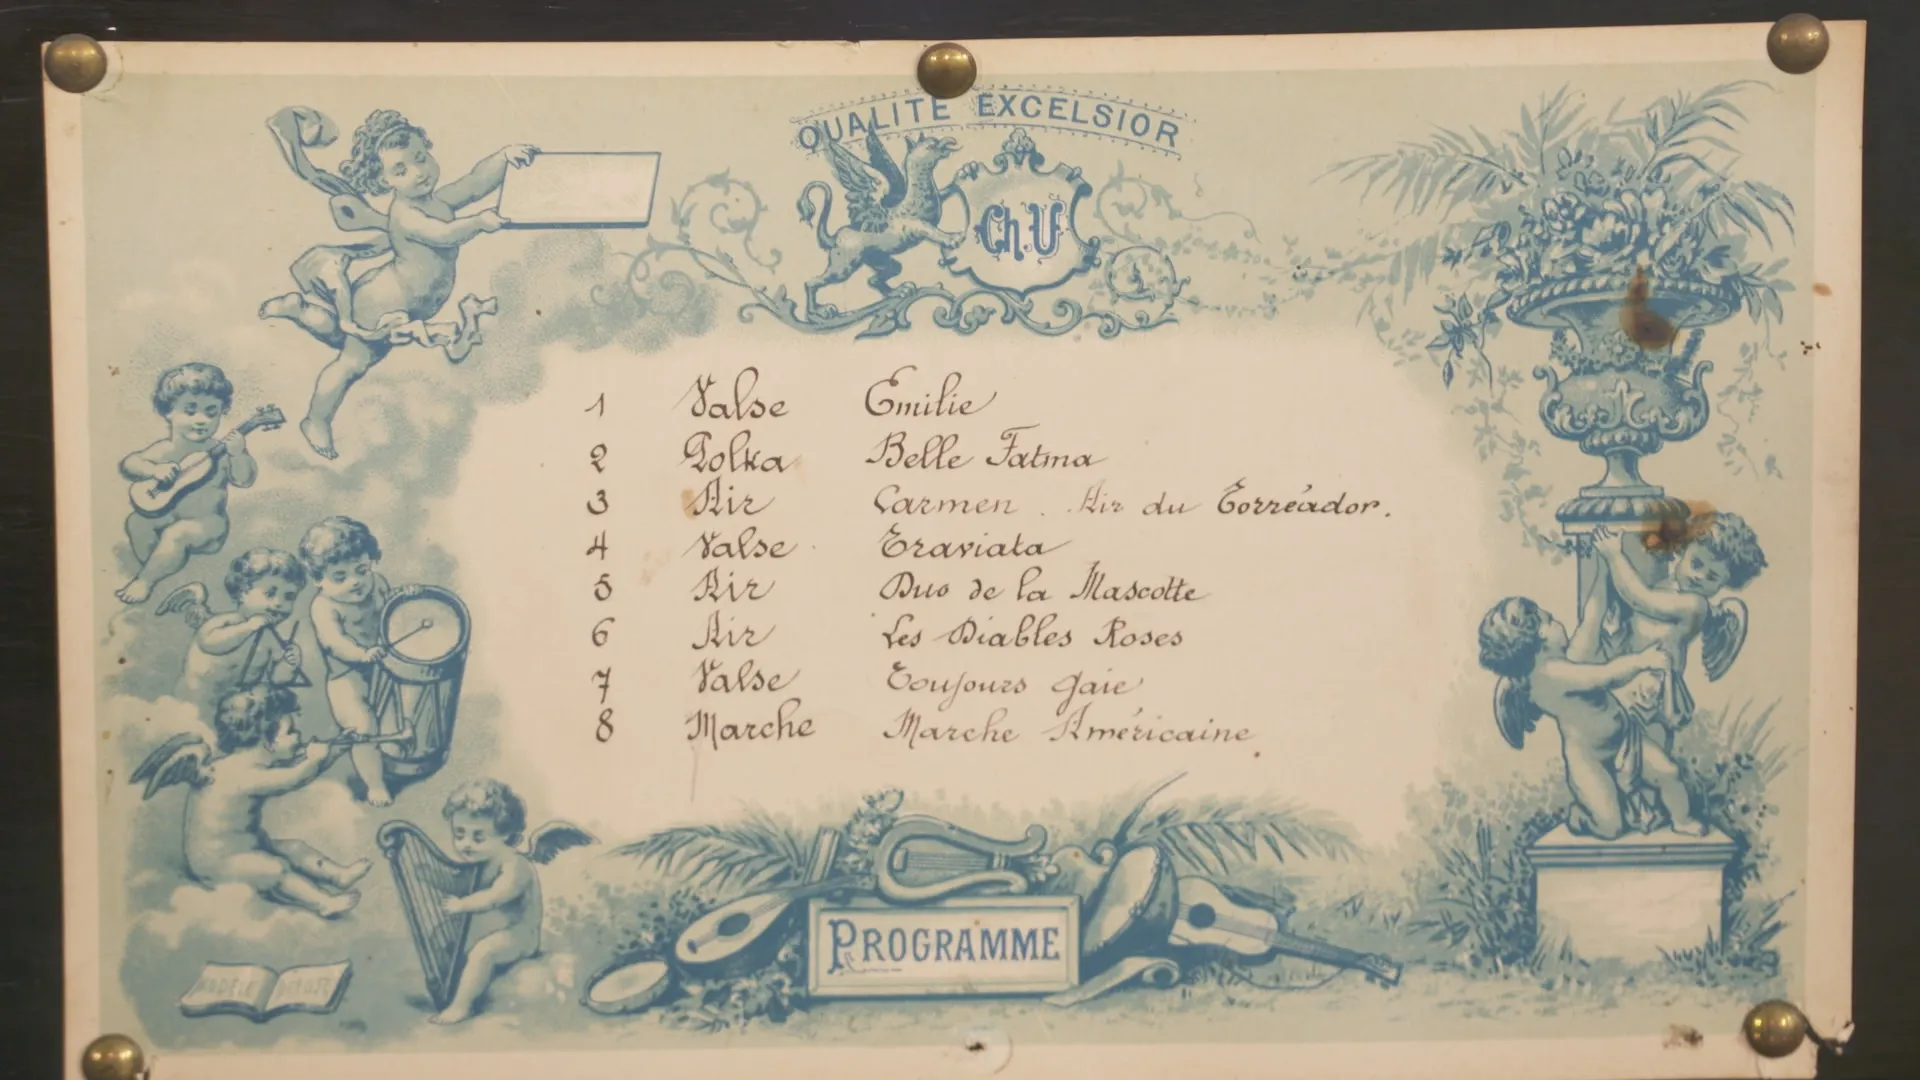 QUALITÉ EXCELSIOR
Ch. U
1 Valse Emilie
2 Polka Belle Fatma
3 Air Carmen . Air du Torréador.
4 Valse Traviata
5 Air Duo de la Mascotte
6 Air Les Diables Roses
7 Valse Toujours gaie
8 Marche Marche Américaine
PROGRAMME
MODÈLE DÉPOSÉ